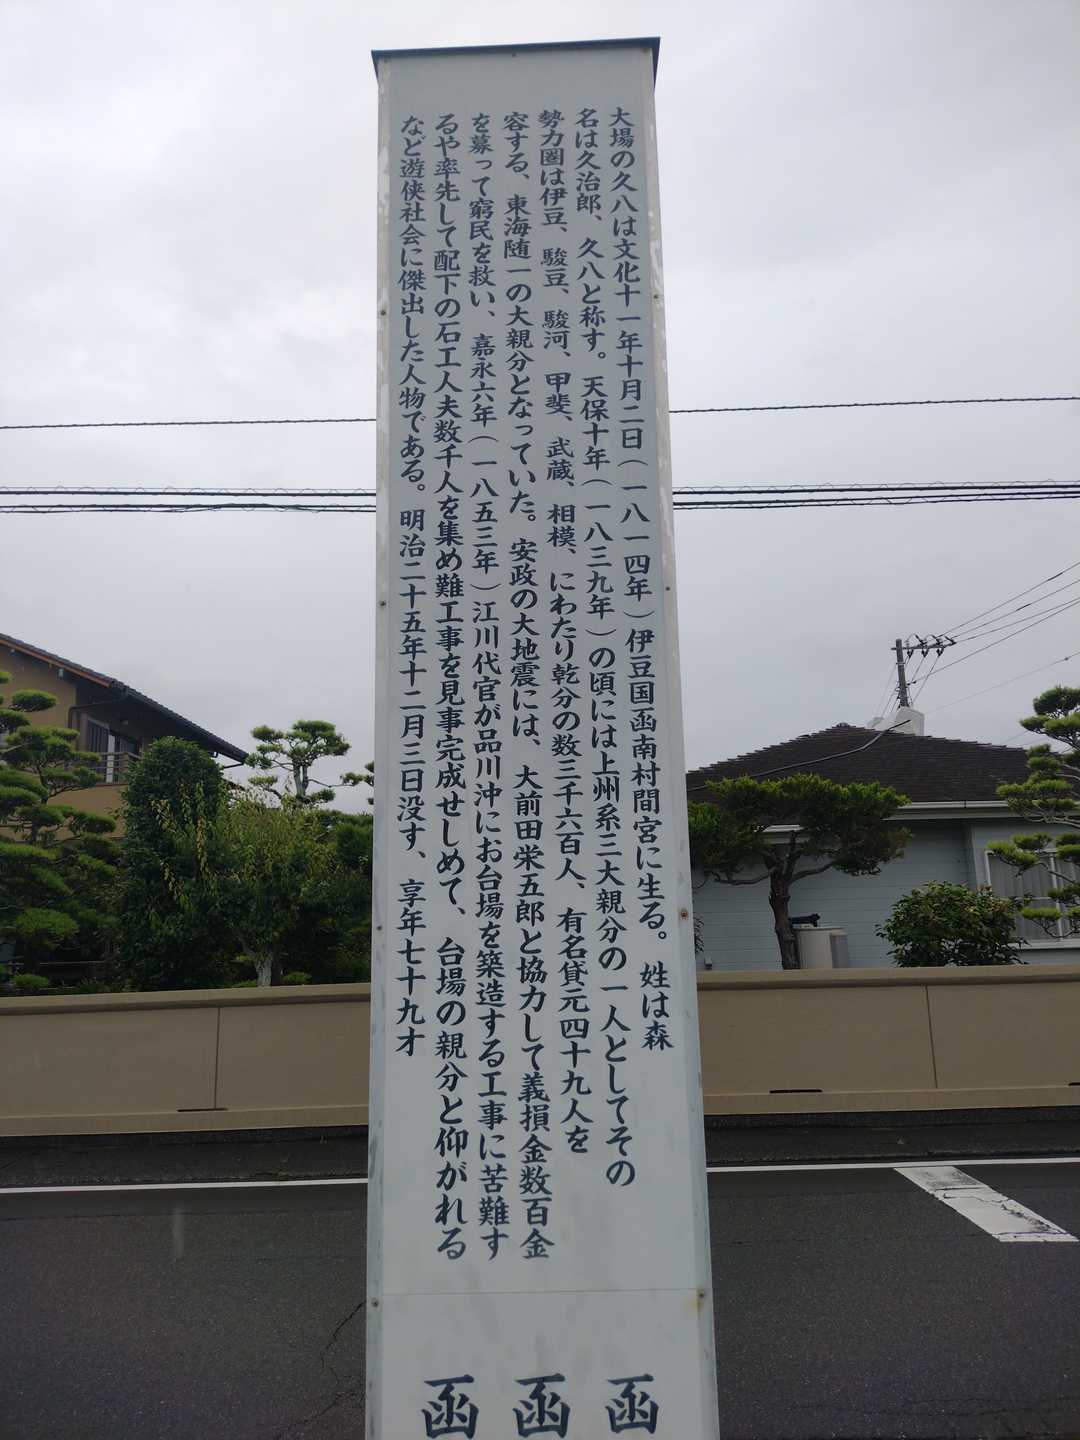 大場の久八は文化十一年十月二日(一八一四年)伊豆国函南村間宮に生る。姓は森
名は久治郎、久八と称す。天保十年(一八三九年)の頃には上州系三大親分の一人としてその
勢力圏は伊豆、駿豆、駿河、甲斐、武蔵、相模、にわたり乾分の数三千六百人、有名貸元四十九人を
容する、東海随一の大親分となっていた。安政の大地震には、大前田栄五郎と協力して義損金数百金
を募って窮民を救い、嘉永六年(一八五三年)江川代官が品川沖にお台場を築造する工事に苦難す
るや率先して配下の石工人夫数千人を集め難工事を見事完成せしめて、台場の親分と仰がれる
など遊侠社会に傑出した人物である。明治二十五年十二月三日没す、享年七十九才
函
函
函